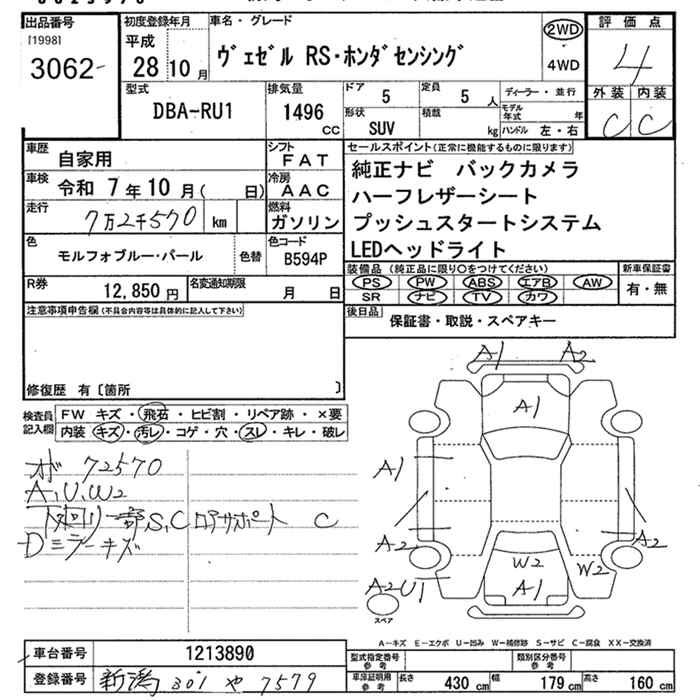 出品番号 初度登録年月 車名・グレード 評価点
[1998] 平成
3062 28 10月 ヴェゼル RS・ホンダセンシング 2WD・4WD 4
型式 排気量 ドア 定員 ディーラー・並行 外装 内装
DBA-RU1 1496 cc 5 5 人 モデル年式 年 C C
形状 積載
SUV kg ハンドル 左・右
車歴 自家用 シフト FAT セールスポイント(正常に機能するものに限ります)
車検 令和 7年10月( 日) 冷房 AAC 純正ナビ バックカメラ
走行 7万2千570 km 燃料 ガソリン ハーフレザーシート
プッシュスタートシステム
色 モルフォブルー・パール 色替 色コード B594P LEDヘッドライト
装備品(純正品に限り○をつけてください) 新車保証書
R券 12,850円 名変通知期限 月 日 PS PW ABS エアB AW 有・無
SR ナビ TV カワ
注意事項申告欄(不具合内容等は具体的に記入して下さい) 後日品 保証書・取説・スペアキー
修復歴 有〔箇所 〕
検査員記入欄 FW キズ・飛石・ヒビ割・リペア跡・×要
内装 キズ・汚レ・コゲ・穴・スレ・キレ・破レ
A1 A2
A1
オド 72570 A1
A,U,W2
下回リ一部S,C ロアサポート C
Dミラーキズ A2 A2
W2 W2
A2U1 A1
スペア
A−キズ E−エクボ U−凹み W−補修跡 S−サビ C−腐食 XX−交換済
車台番号 1213890 型式指定番号 参考 類別区分番号 参考
登録番号 新潟 301 や 7579 車庫証明用 参考 長さ 430 cm 幅 179 cm 高さ 160 cm